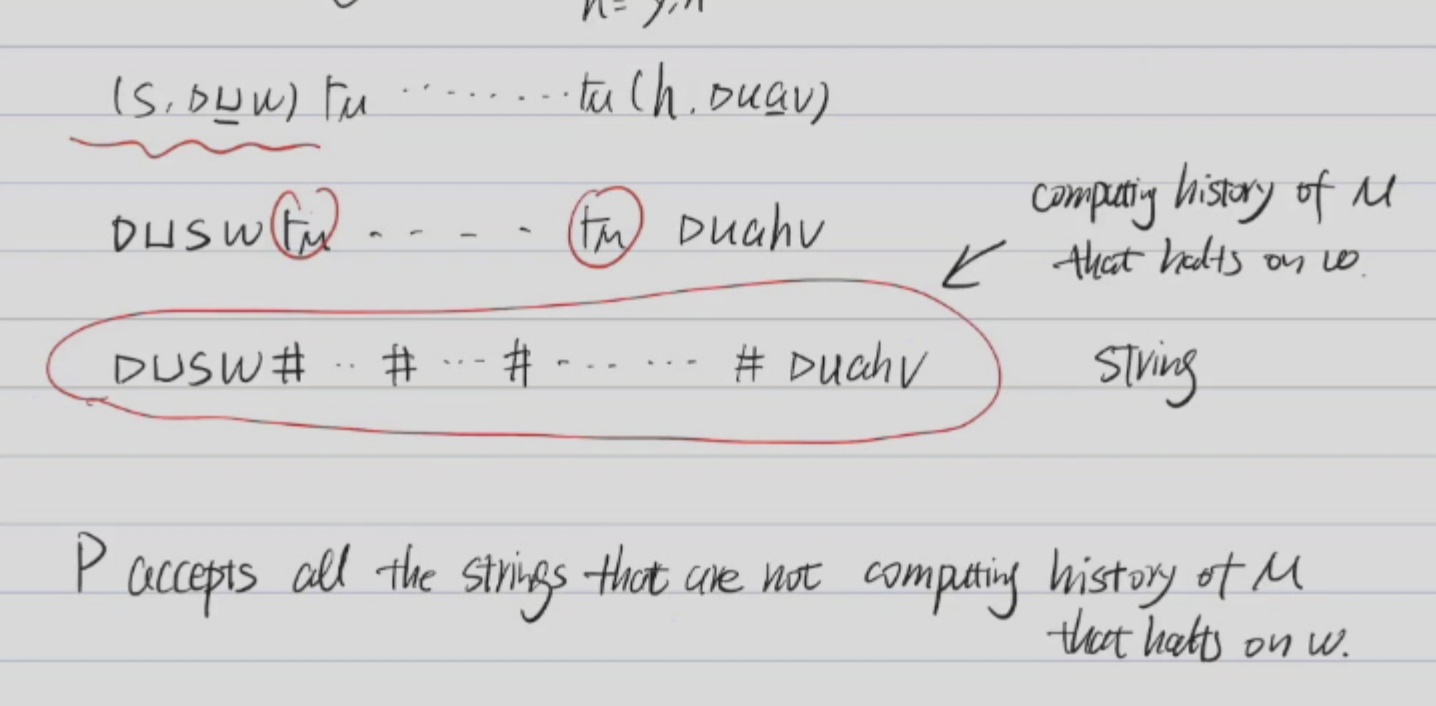 (s, ▷⊔w) ⊢M ········ ⊢M (h, ▷uav)
▷⊔sw ⊢M - - - - ⊢M ▷uahv
computing history of M
that halts on w.
▷⊔sw # ·· # ··· # ······ # ▷uahv
string
P accepts all the strings that are not computing history of M
that halts on w.